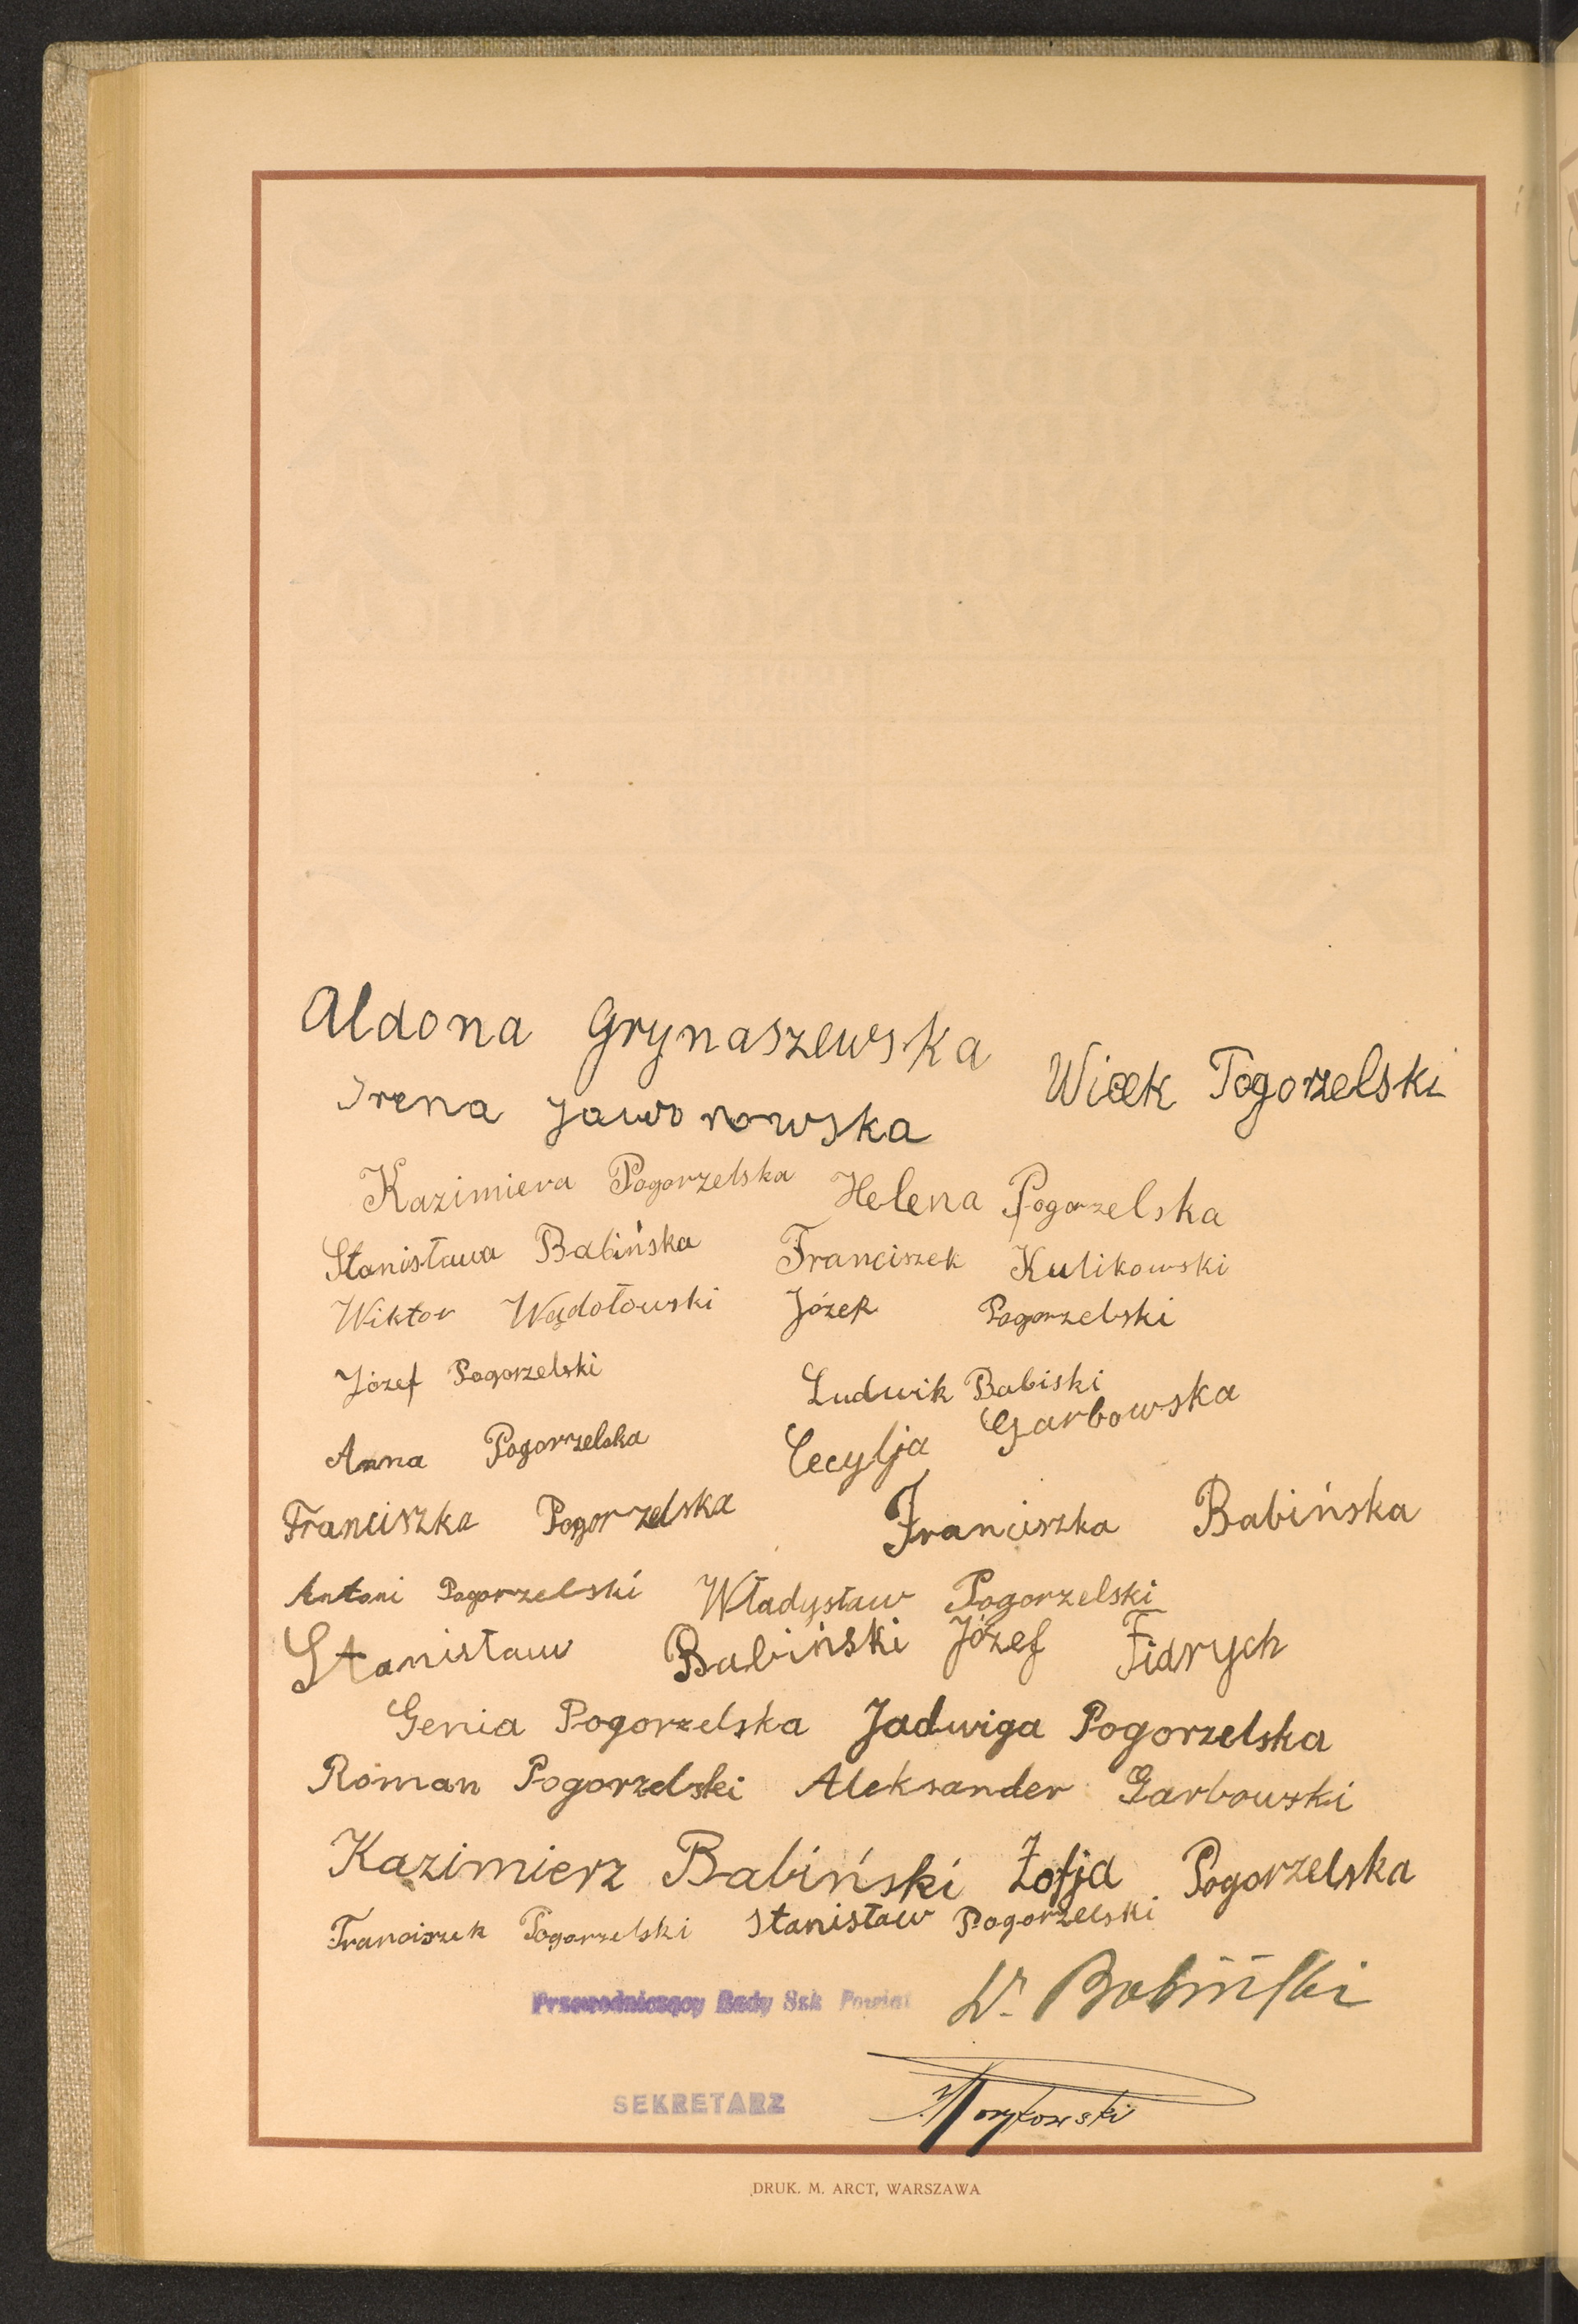 Aldona Grynaszewska
Wicek Pogorzelski
Irena Jaworowska
Kazimiera Pogorzelska Helena Pogorzelska
Stanisława Babińska Franciszek Kulikowski
Wiktor Wądołowski Józef Pogorzelski
Józef Pogorzelski Ludwik Babiski
Anna Pogorzelska Cecylja Garbowska
Franciszka Pogorzelska Franciszka Babińska
Antoni Pogorzelski Władysław Pogorzelski
Stanisław Babiński Józef Fidrych
Genia Pogorzelska Jadwiga Pogorzelska
Roman Pogorzelski Aleksander Garbowski
Kazimierz Babiński Zofja Pogorzelska
Franciszek Pogorzelski Stanisław Pogorzelski
Przewodniczący Rady Szk Powiat W. Babiński
SEKRETARZ
DRUK. M. ARCT, WARSZAWA